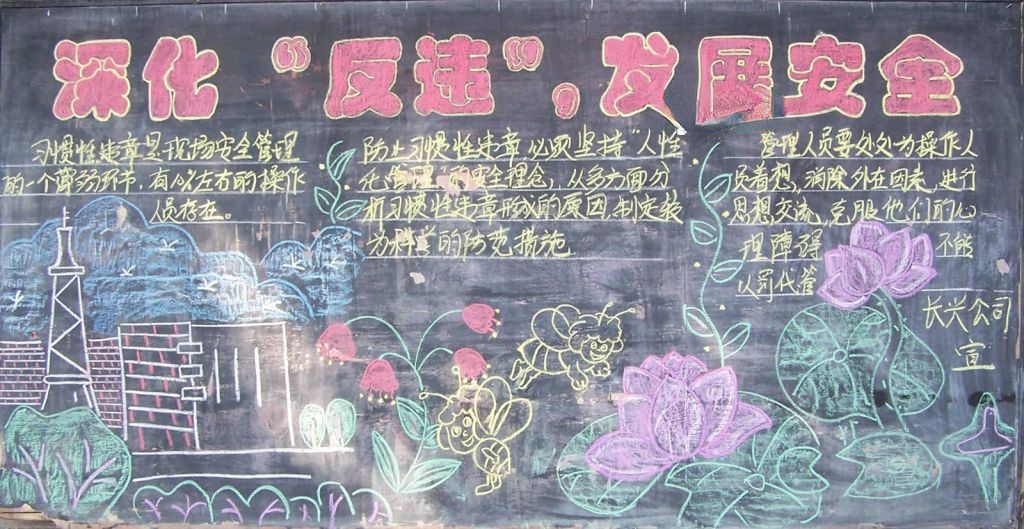 深化“反违”，发展安全
习惯性违章是现场安全管理
的一个薄弱环节，有90%左右的操作
人员存在。
防止习惯性违章必须坚持“人性
化管理”的安全理念，从多方面分
析习惯性违章形成的原因，制定较
为科学的防范措施
管理人员要处处为操作人
员着想，消除外在因素，进行
思想交流，克服他们的心
理障碍 不能
以罚代管
长兴公司
宣